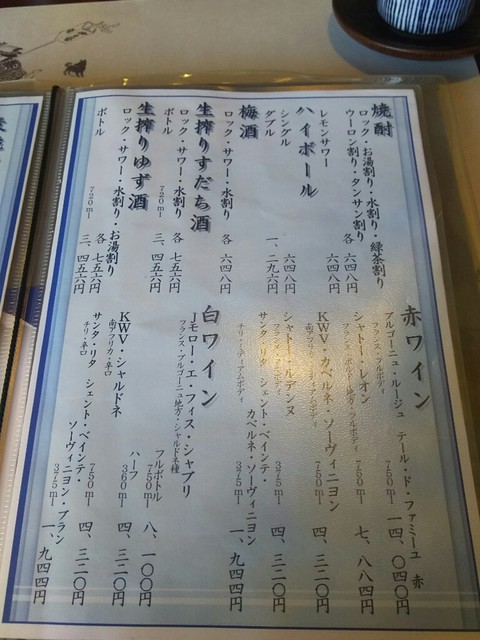 焼酎
ロック・お湯割り・水割り・緑茶割り
ウーロン割り・タンサン割り
各 六四八円
レモンサワー 六四八円
ハイボール
シングル 六四八円
ダブル 一、二九六円
梅酒
ロック・サワー・水割り 各 六四八円
生搾りすだち酒
ロック・サワー・水割り 各 七五六円
ボトル 720ml 三、四五六円
生搾りゆず酒
ロック・サワー・水割り・お湯割り 各 七五六円
ボトル 720ml 三、四五六円
赤ワイン
ブルゴーニュ・ルージュ テール・ド・ファミーユ 赤
フランス・フルボディ
750ml 一四、〇四〇円
シャトー・レオン
フランス・ボルドー地方・フルボディ
750ml 七、八八四円
KWV・カベルネ・ソーヴィニヨン
750ml 四、三二〇円
シャトー・ルデンヌ
375ml 四、三二〇円
サンタ・リタ シェント・ベインテ・
カベルネ・ソーヴィニヨン
チリ・ミディアムボディ
375ml 一、九四四円
白ワイン
Jモロー・エ・フィス・シャブリ
フランス・ブルゴーニュ地方・シャルドネ種
フルボトル 750ml 八、一〇〇円
ハーフ 360ml 四、三二〇円
KWV・シャルドネ
南アフリカ・辛口
750ml 四、三二〇円
サンタ・リタ シェント・ベインテ・
ソーヴィニヨン・ブラン
チリ・辛口
375ml 一、九四四円